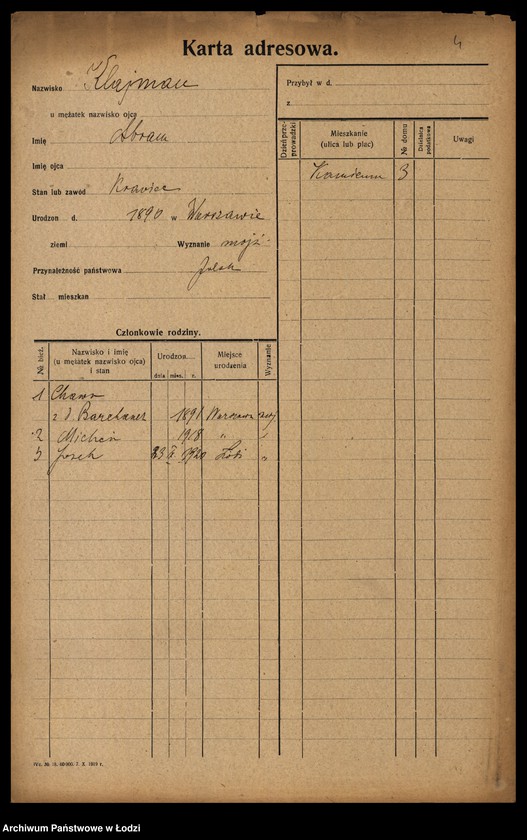 4
Karta adresowa.
Nazwisko Klajman
u mężatek nazwisko ojca
Imię Abram
Imię ojca
Stan lub zawód Krawiec
Urodzon d. 1890 w Warszawie
ziemi Wyznanie mojż.
Przynależność państwowa Polak
Stał. mieszkan
Członkowie rodziny.
№ bież. Nazwisko i imię (u mężatek nazwisko ojca) i stan Urodzon dnia mies. r. Miejsce urodzenia Wyznanie
1 Chawa
z d. 1891 Warszawa mojż
2 1918 " "
3 Josek 23 V 1920 Łódź "
Przybył w d.
z
Dzień przeprowadzki Mieszkanie (ulica lub plac) № domu Dzielnica podatkowa Uwagi
Kamienna 3
Archiwum Państwowe w Łodzi